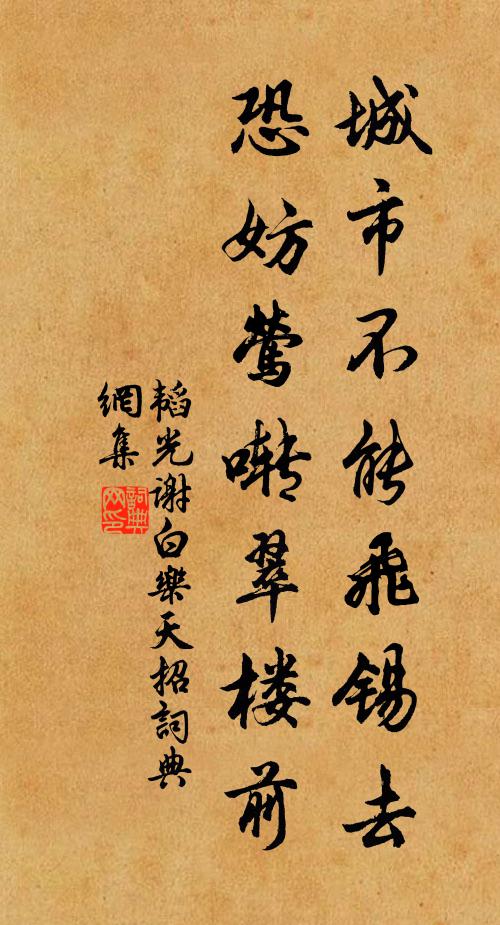 城市不能飛錫去
恐妨莺啭翠楼前
韬光谢白樂天招詞典
網集
詞典
网印